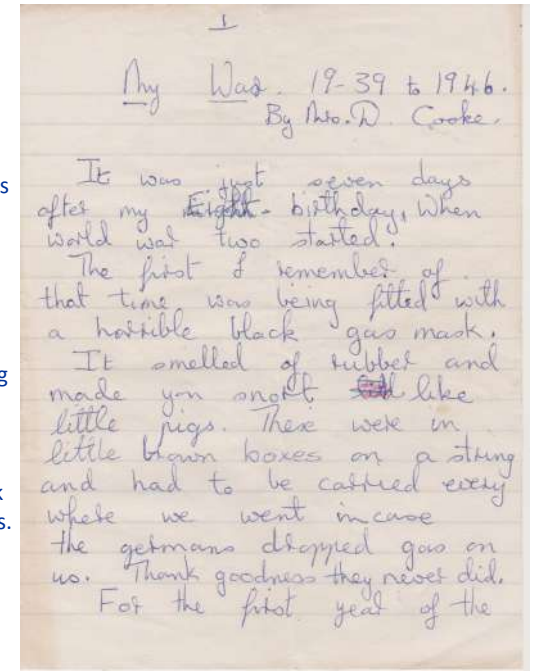 1
My War. 19-39 to 1946.
By Mrs. D. Cooke.
It was just seven days
after my Eight- birthday, When
world war two started.
The first I remember of
that time was being fitted with
a horrible black gas mask.
It smelled of rubber and
made you snort like
little pigs. These were in
little brown boxes on a string
and had to be carried every
where we went incase
the germans dropped gas on
us. Thank goodness they never did.
For the first year of the
s
g
k
s.